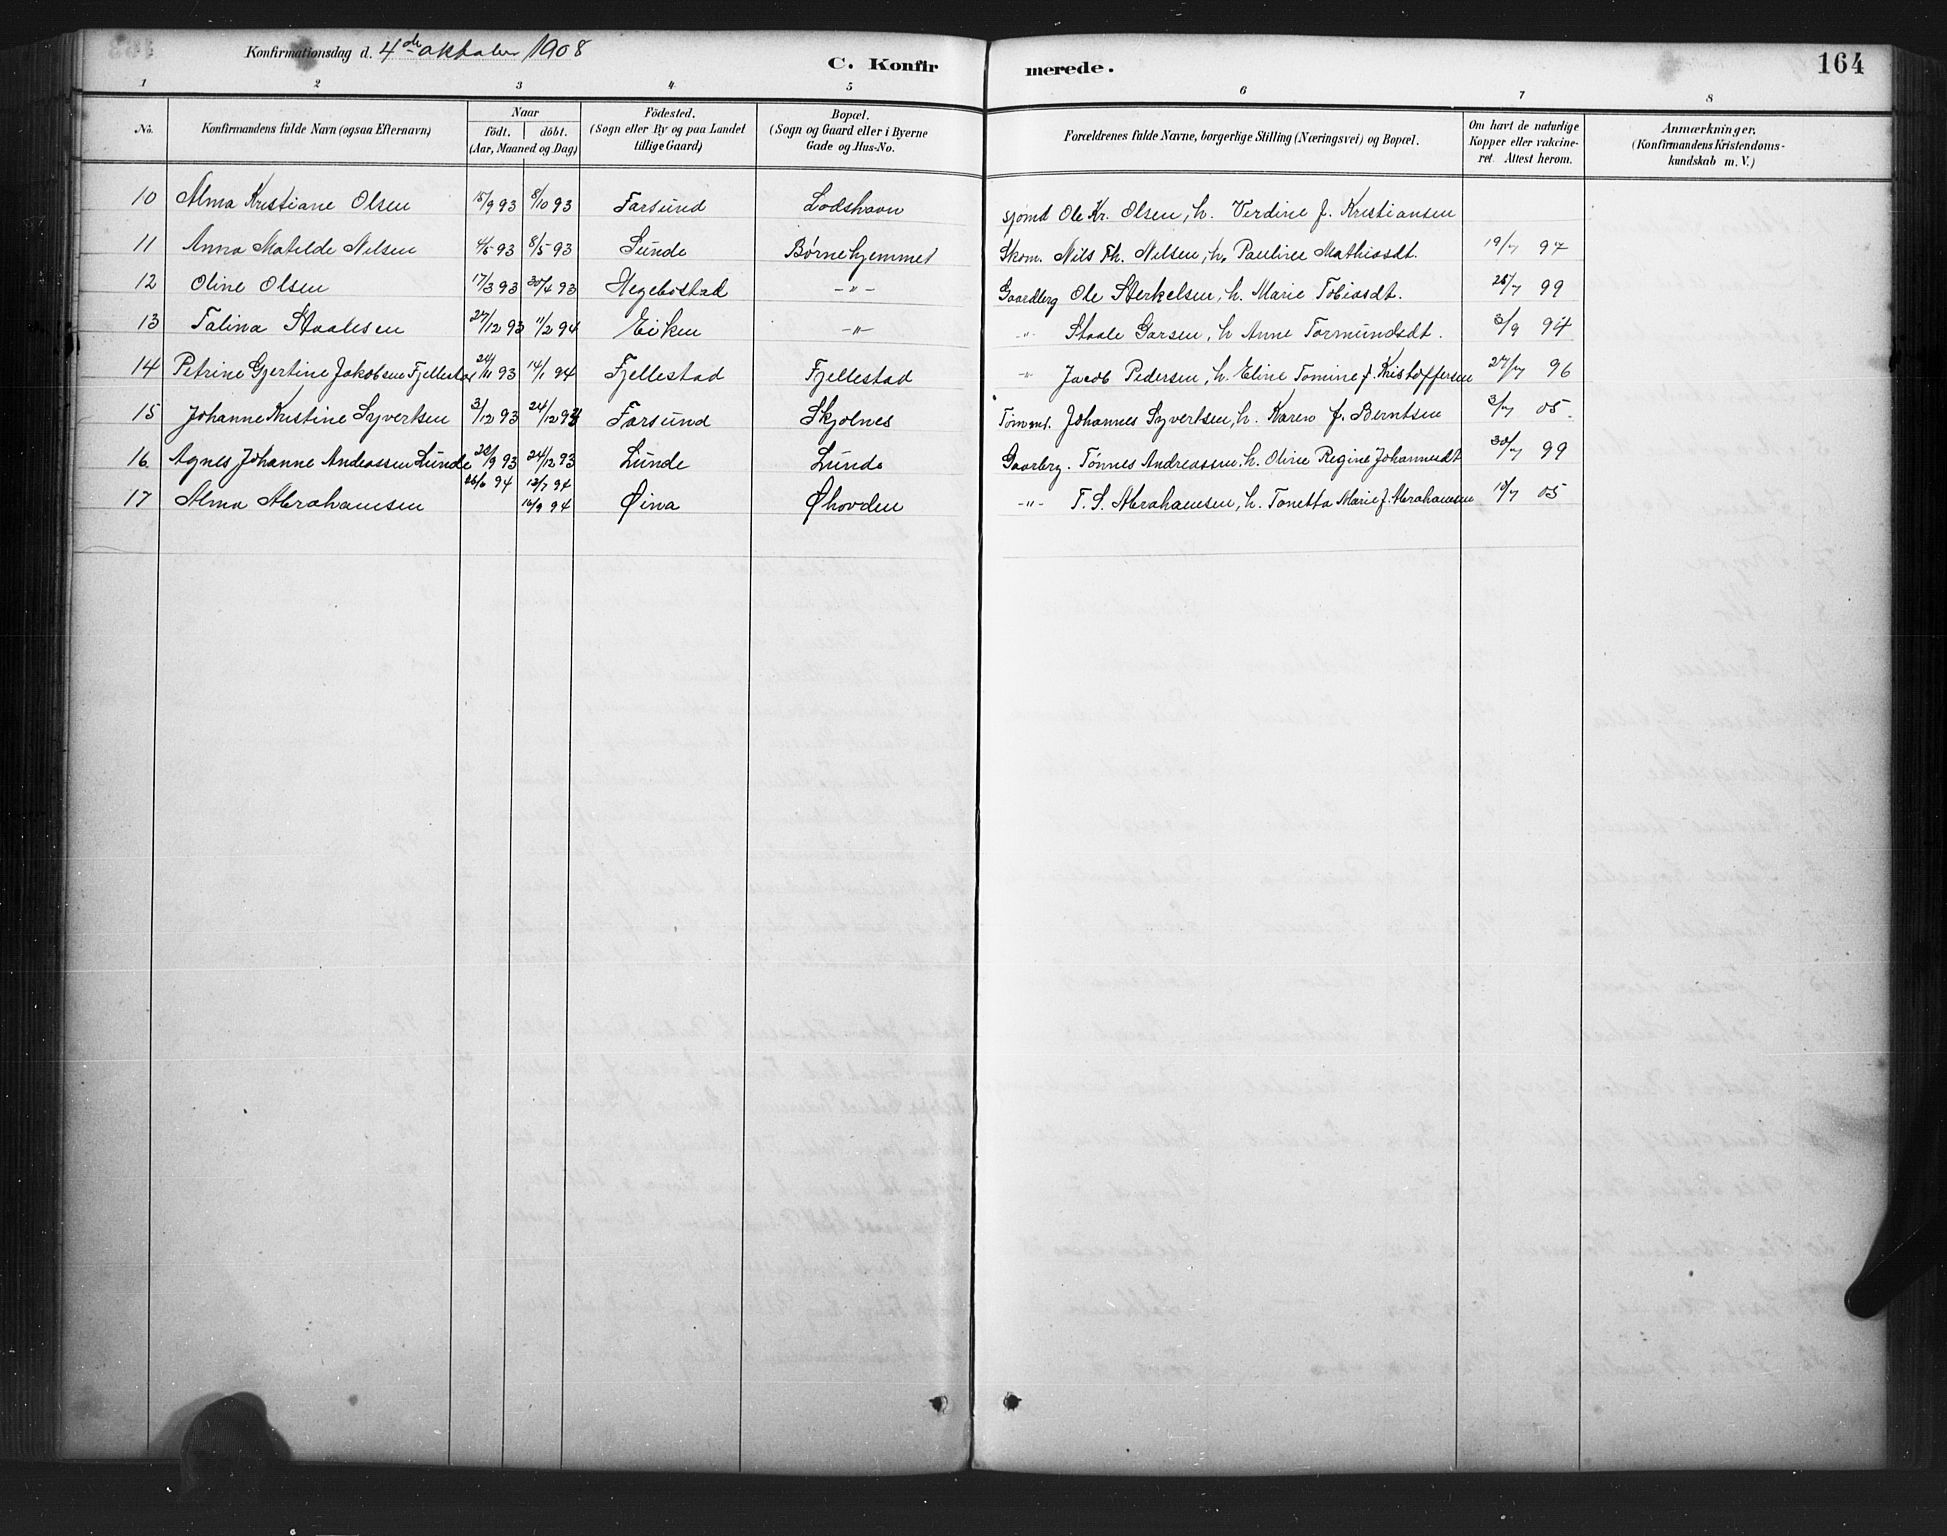 Konfirmationsdag d. 4de oktober 1908
C. Konfirmerede.
164
1 2 3 4 5 6 7 8
No. Konfirmandens fulde Navn (ogsaa Efternavn) Naar født. døbt. (Aar, Maaned og Dag) Fødested. (Sogn eller By og paa Landet tillige Gaard) Bopæl. (Sogn og Gaard eller i Byerne Gade og Hus-No. Forældrenes fulde Navne, borgerlige Stilling (Næringsvei) og Bopæl. Om havt de naturlige Kopper eller vakcineret. Attest herom. Anmærkninger. (Konfirmandens Kristendomskundskab m. V.)
10 Alma Kristiane Olsen 15/9 93 8/10 93 Farsund Lodshavn sjömd Ole Kr. Olsen, h. Verdine f. Kristiansen
11 Anna Matilde Nilsen 4/5 93 8/5 93 Sunde Børnehjemmet Skom. Nils Th. Nilsen, h. Pauline Mathiasdt. 19/7 97
12 Oline Olsen 17/3 93 30/4 93 Hegebostad -"- Gaardbrg Ole Sterkelsen, h. Marie Tobiasdt. 26/7 99
13 Talina Staalesen 27/12 93 11/2 94 Eiken -"- -"- Staale Garsen, h Anne Tormundsdt. 3/9 94
14 Petrine Gjertine Jakobsen Fjellestad 24/11 93 14/1 94 Fjellestad Fjellestad -"- Jacob Pedersen, h. Eline Tomine f. Kristoffersen 27/7 96
15 Johanne Kristine Syvertsen 3/12 93 24/12 93 Farsund Skjolnes Tømmd. Johannes Syvertsen, h. Karen f. Berntsen 3/7 05.
16 Agnes Johanne Andreassen Lunde 22/9 93 24/12 93 Lunde Lunde Gaarbrg. Tønnes Andreassen, h. Oline Regine Johannesdt 30/7 99
26/6 94 12/7 94
17 Alma Abrahamsen 16/9 94 Øina Øhovden -"- T. S. Abrahamsen, h. Tonetta Marie f. Abrahamsen 10/7 05